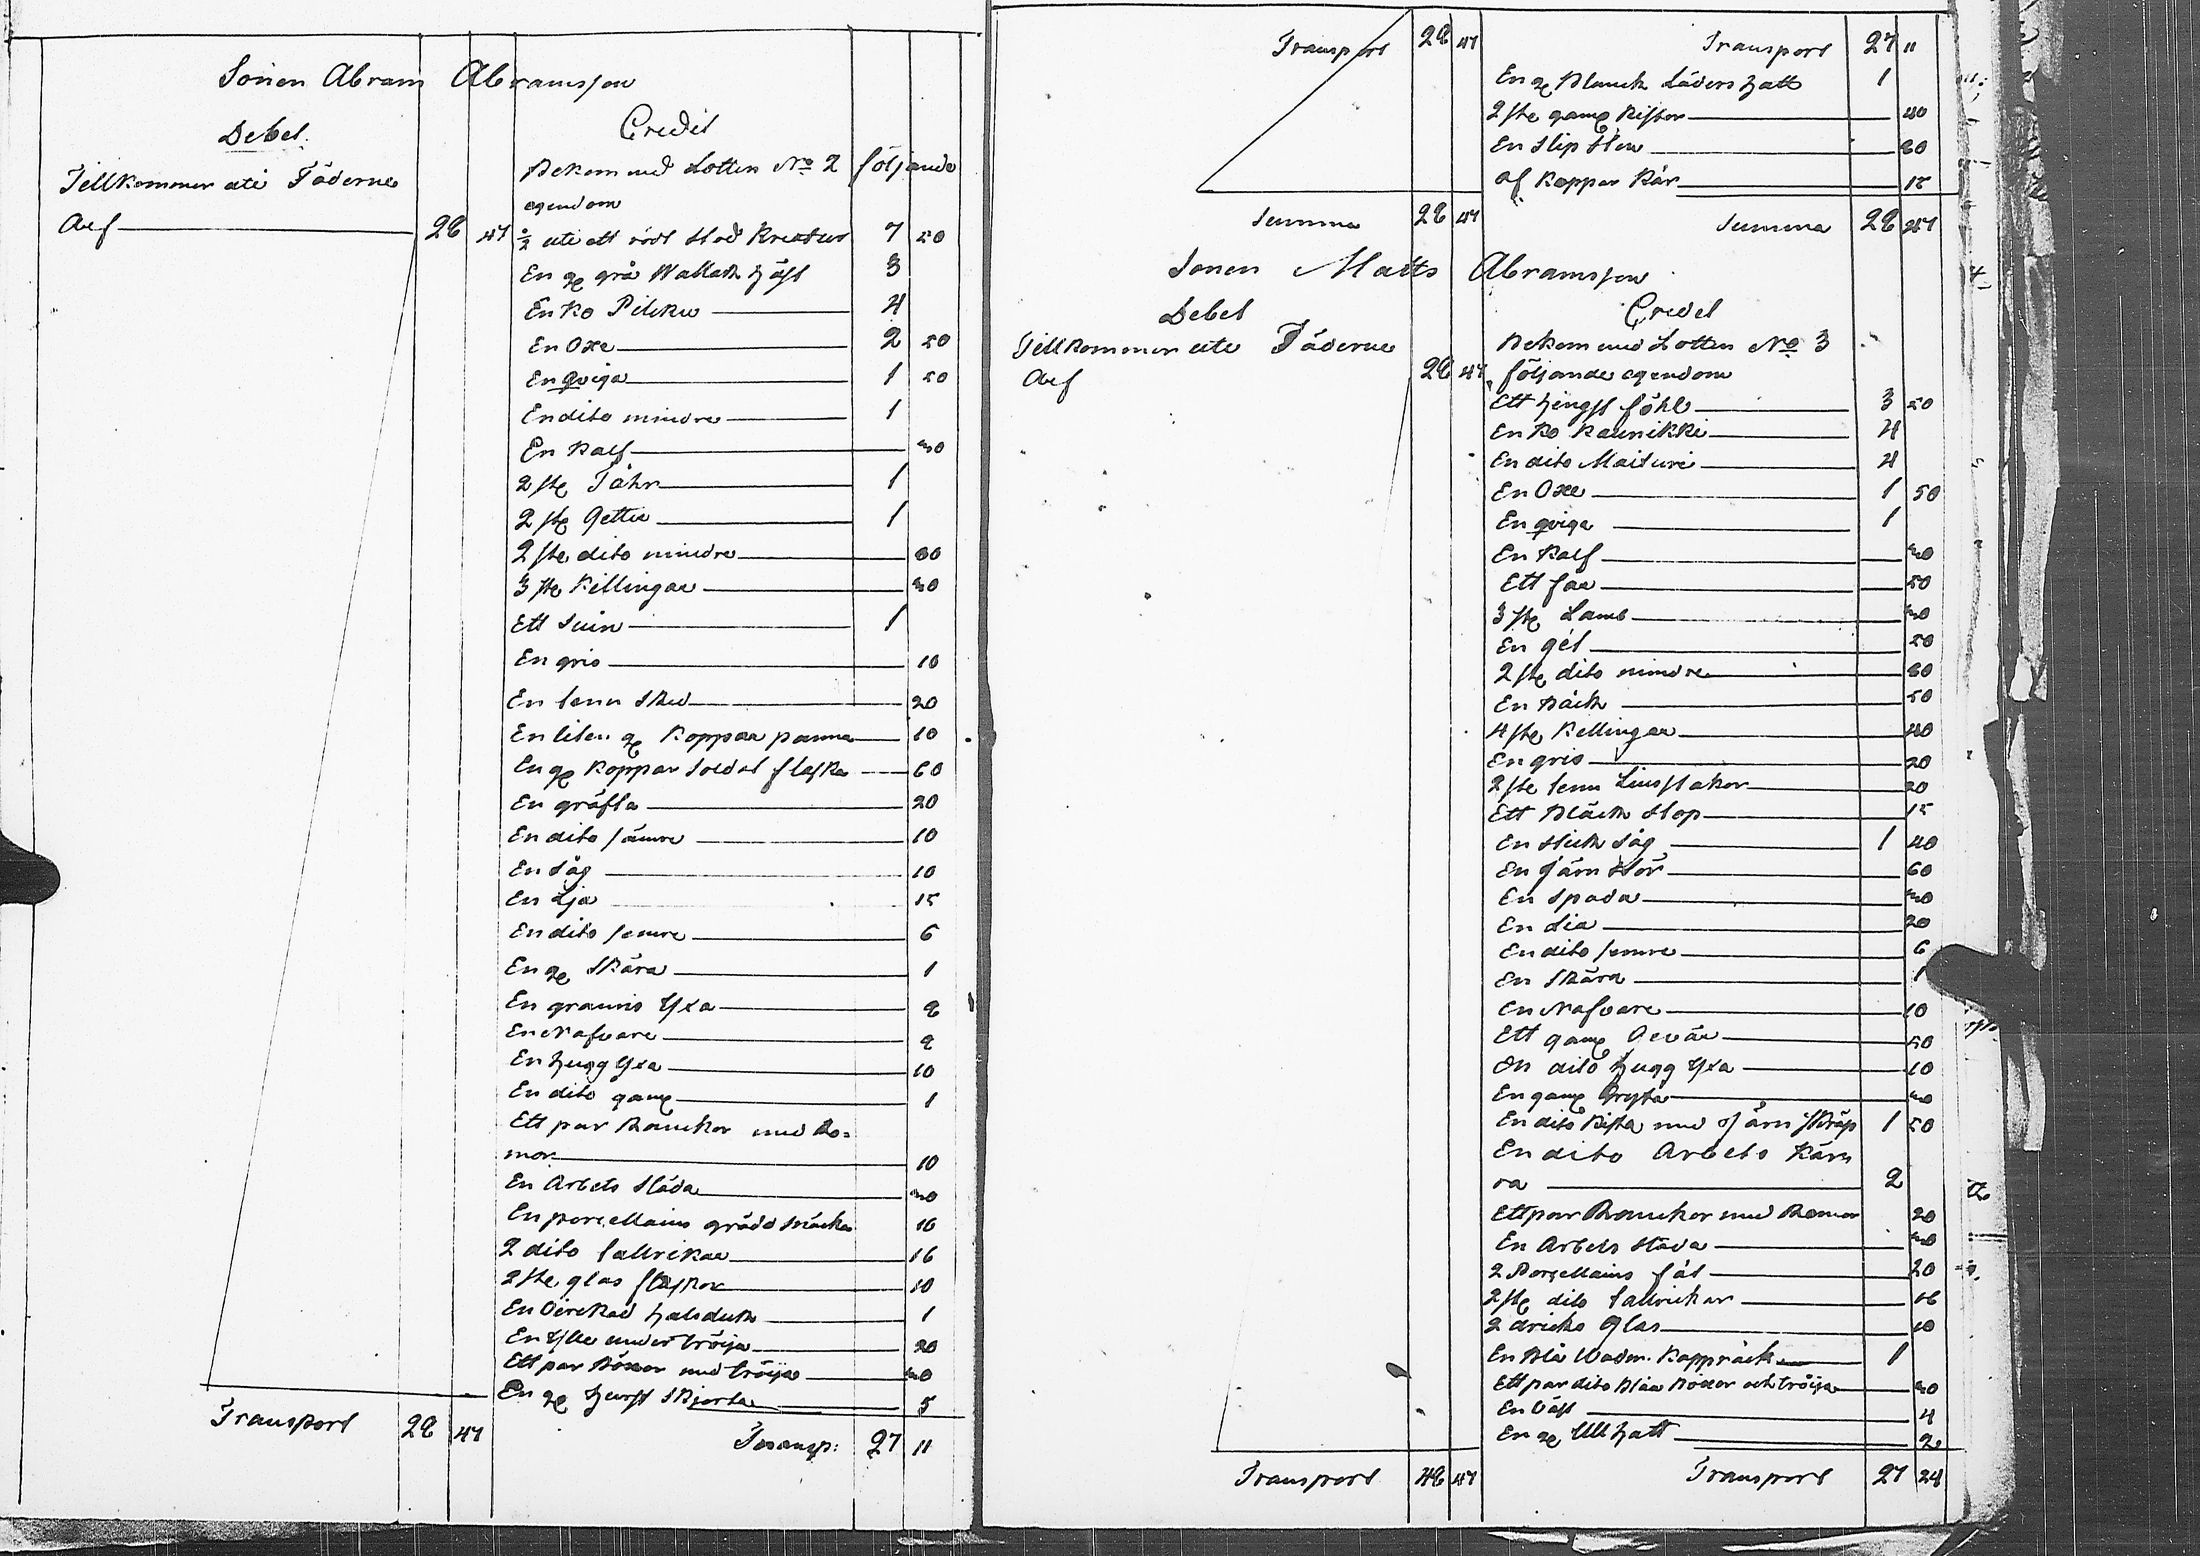 Sonen Abram Abramsson
Debet.
Tillkommer uti Fäderne
Arf 28 47
Credit
Bekom med Lotten No 2 följande
egendom
½ uti ett rödt Stod Kreatur 7 50
En gl grå Wallack häst 3
En Ko Piluku 4
En Oxe 2 50
En Qviga 1 50
En dito mindre 1
En Kalf 30
2 ste Fåhr 1
2 ste Getter 1
2 ste dito mindre 80
3 ste Killingar 30
Ett Suin 1
En gris 10
En tenn Sked 20
En liten gl Koppar panna 10
En gl Koppar Soldat flaska 60
En gräfta 20
En dito sämre 10
En Såg 10
En Lja 15
En dito semre 6
En gl Skära 1
En granris Yxa 8
En Nafvare 8
En hugg Yxa 10
En dito gaml 1
Ett par Rankor med Re-
mor 10
En Arbets Släda 30
En porcellains grädd snäcka 16
2 dito tallrikar 16
2 ste glas flaskor 10
En Virckad halsduk 1
En Ylle under tröija 20
Ett par Böxor med tröija 30
En gl hampf Skjorta 5
Transport 28 47
Transp: 27 11
Transport 28 47
Transport 27 11
En gl Blanck Läders hatt 1
2 ste gaml Kistor 40
En Slip Sten 80
af Koppar Kär 15
Summa 28 47
Summa 28 47
Sonen Matts Abramsson
Debet
Tillkommer uti Fäderne
Arf 28 47
Credit
Bekom med Lotten No 3
följande egendom
Ett hingst föhl 3 50
En Ko Kaunikki 4
En dito Maituri 4
En Oxe 1 50
En qviga 1
En Kalf 30
Ett far 50
3 ste Lamb 30
En gét 50
2 ste dito mindre 80
En Båck 50
4 ste Killingar 40
En gris 20
2 ste tenn Liusstakor 20
Ett Bläck Stop 15
En Stick Såg 1 40
En Järn Stör 60
En Spada 30
En Lia 20
En dito semre 6
En Skära 1
En Nafvare 10
Ett gaml Gevär 50
En dito hugg Yxa 10
En gaml Gryta 30
En dito Kista med Järn skråp 1 50
En dito Arbets Kärr
ra 2
Ett par Ranckor med Remor 20
En Arbets Släda 30
2 Porcellains fat 20
2 ste dito tallrickar 16
2 dricks Glas 10
En Blå Wadm. Kappräck 1
Ett par dito Blåa Böxor och tröija 30
En Väst 4
En gl Ull hatt 2
Transport 28 47
Transport 27 24